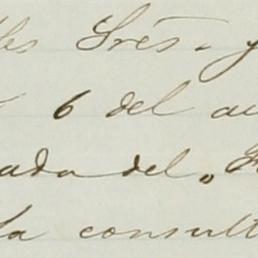 les Srés. y
6 del au
ada del „
la consult